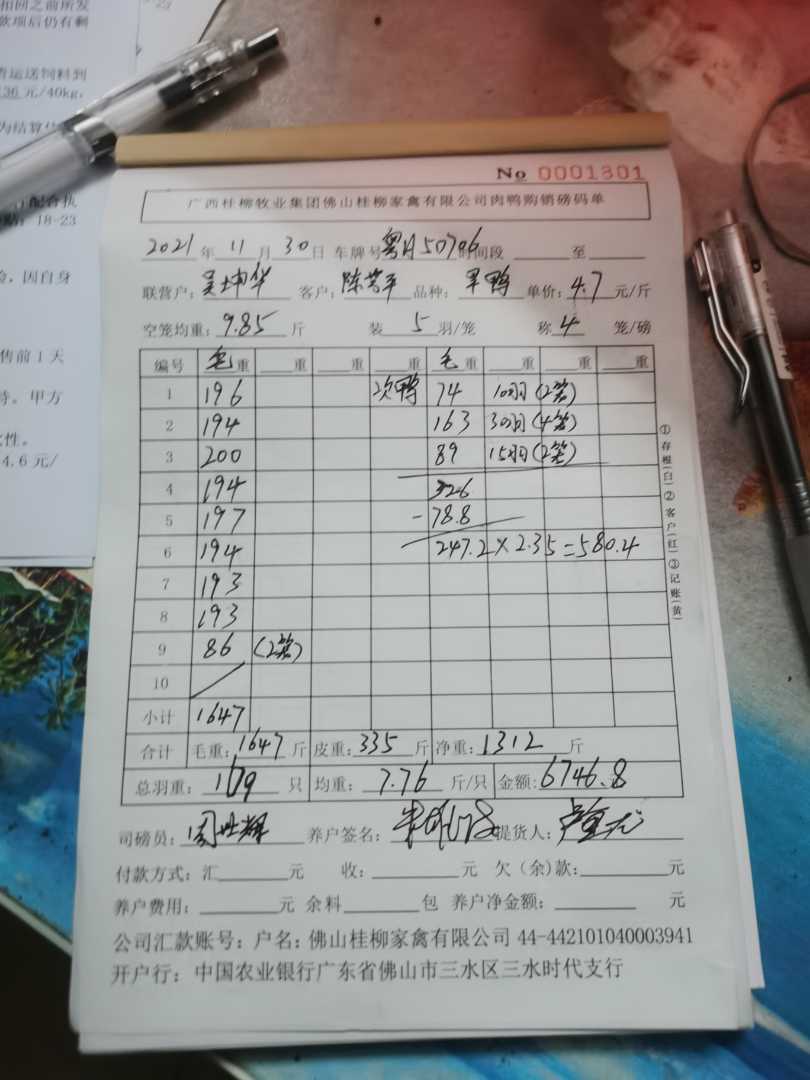 扣回之前所发
款项后仍有剩
运送饲料到
136 元/40kg,
为结算
配合执
18-23
因自身
售前 1 天
甲方
4.6 元/
No 0001301
广西桂柳牧业集团佛山桂柳家禽有限公司肉鸭购销磅码单
2021 年 11 月 30 日 车牌号 粤A50706 时间段 至
联营户: 客户: 品种: 单价: 4.7 元/斤
空笼均重: 9.85 斤 装 5 羽/笼 称 4 笼/磅
编号 毛重 重 重 重 毛重 重 重 重
1 196 次鸭 74 10羽(2笼)
2 194 163 30羽(4笼)
3 200 89 15羽(2笼)
4 194 326
5 197 -78.8
6 194 247.2×2.35=580.4
7 193
8 193
9 86 (2笼)
10
小计 1647
合计 毛重: 1647 斤 皮重: 335 斤 净重: 1312 斤
总羽重: 169 只 均重: 7.76 斤/只 金额: 6746.8
司磅员: 养户签名: 提货人:
付款方式: 汇 元 收: 元 欠(余)款: 元
养户费用: 元 余料 包 养户净金额: 元
公司汇款账号: 户名: 佛山桂柳家禽有限公司 44-442101040003941
开户行: 中国农业银行广东省佛山市三水区三水时代支行
①存根(白)②客户(红)③记账(黄)